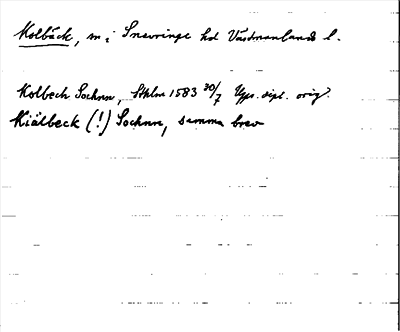 Kolbäck, sn i Snevringe hd Västmanlands l.
Kolbech Sochnn, Sthlm 1583 30/7 Upps. dipl. orig.
Kiälbeck (!) Sochnn, samma brev